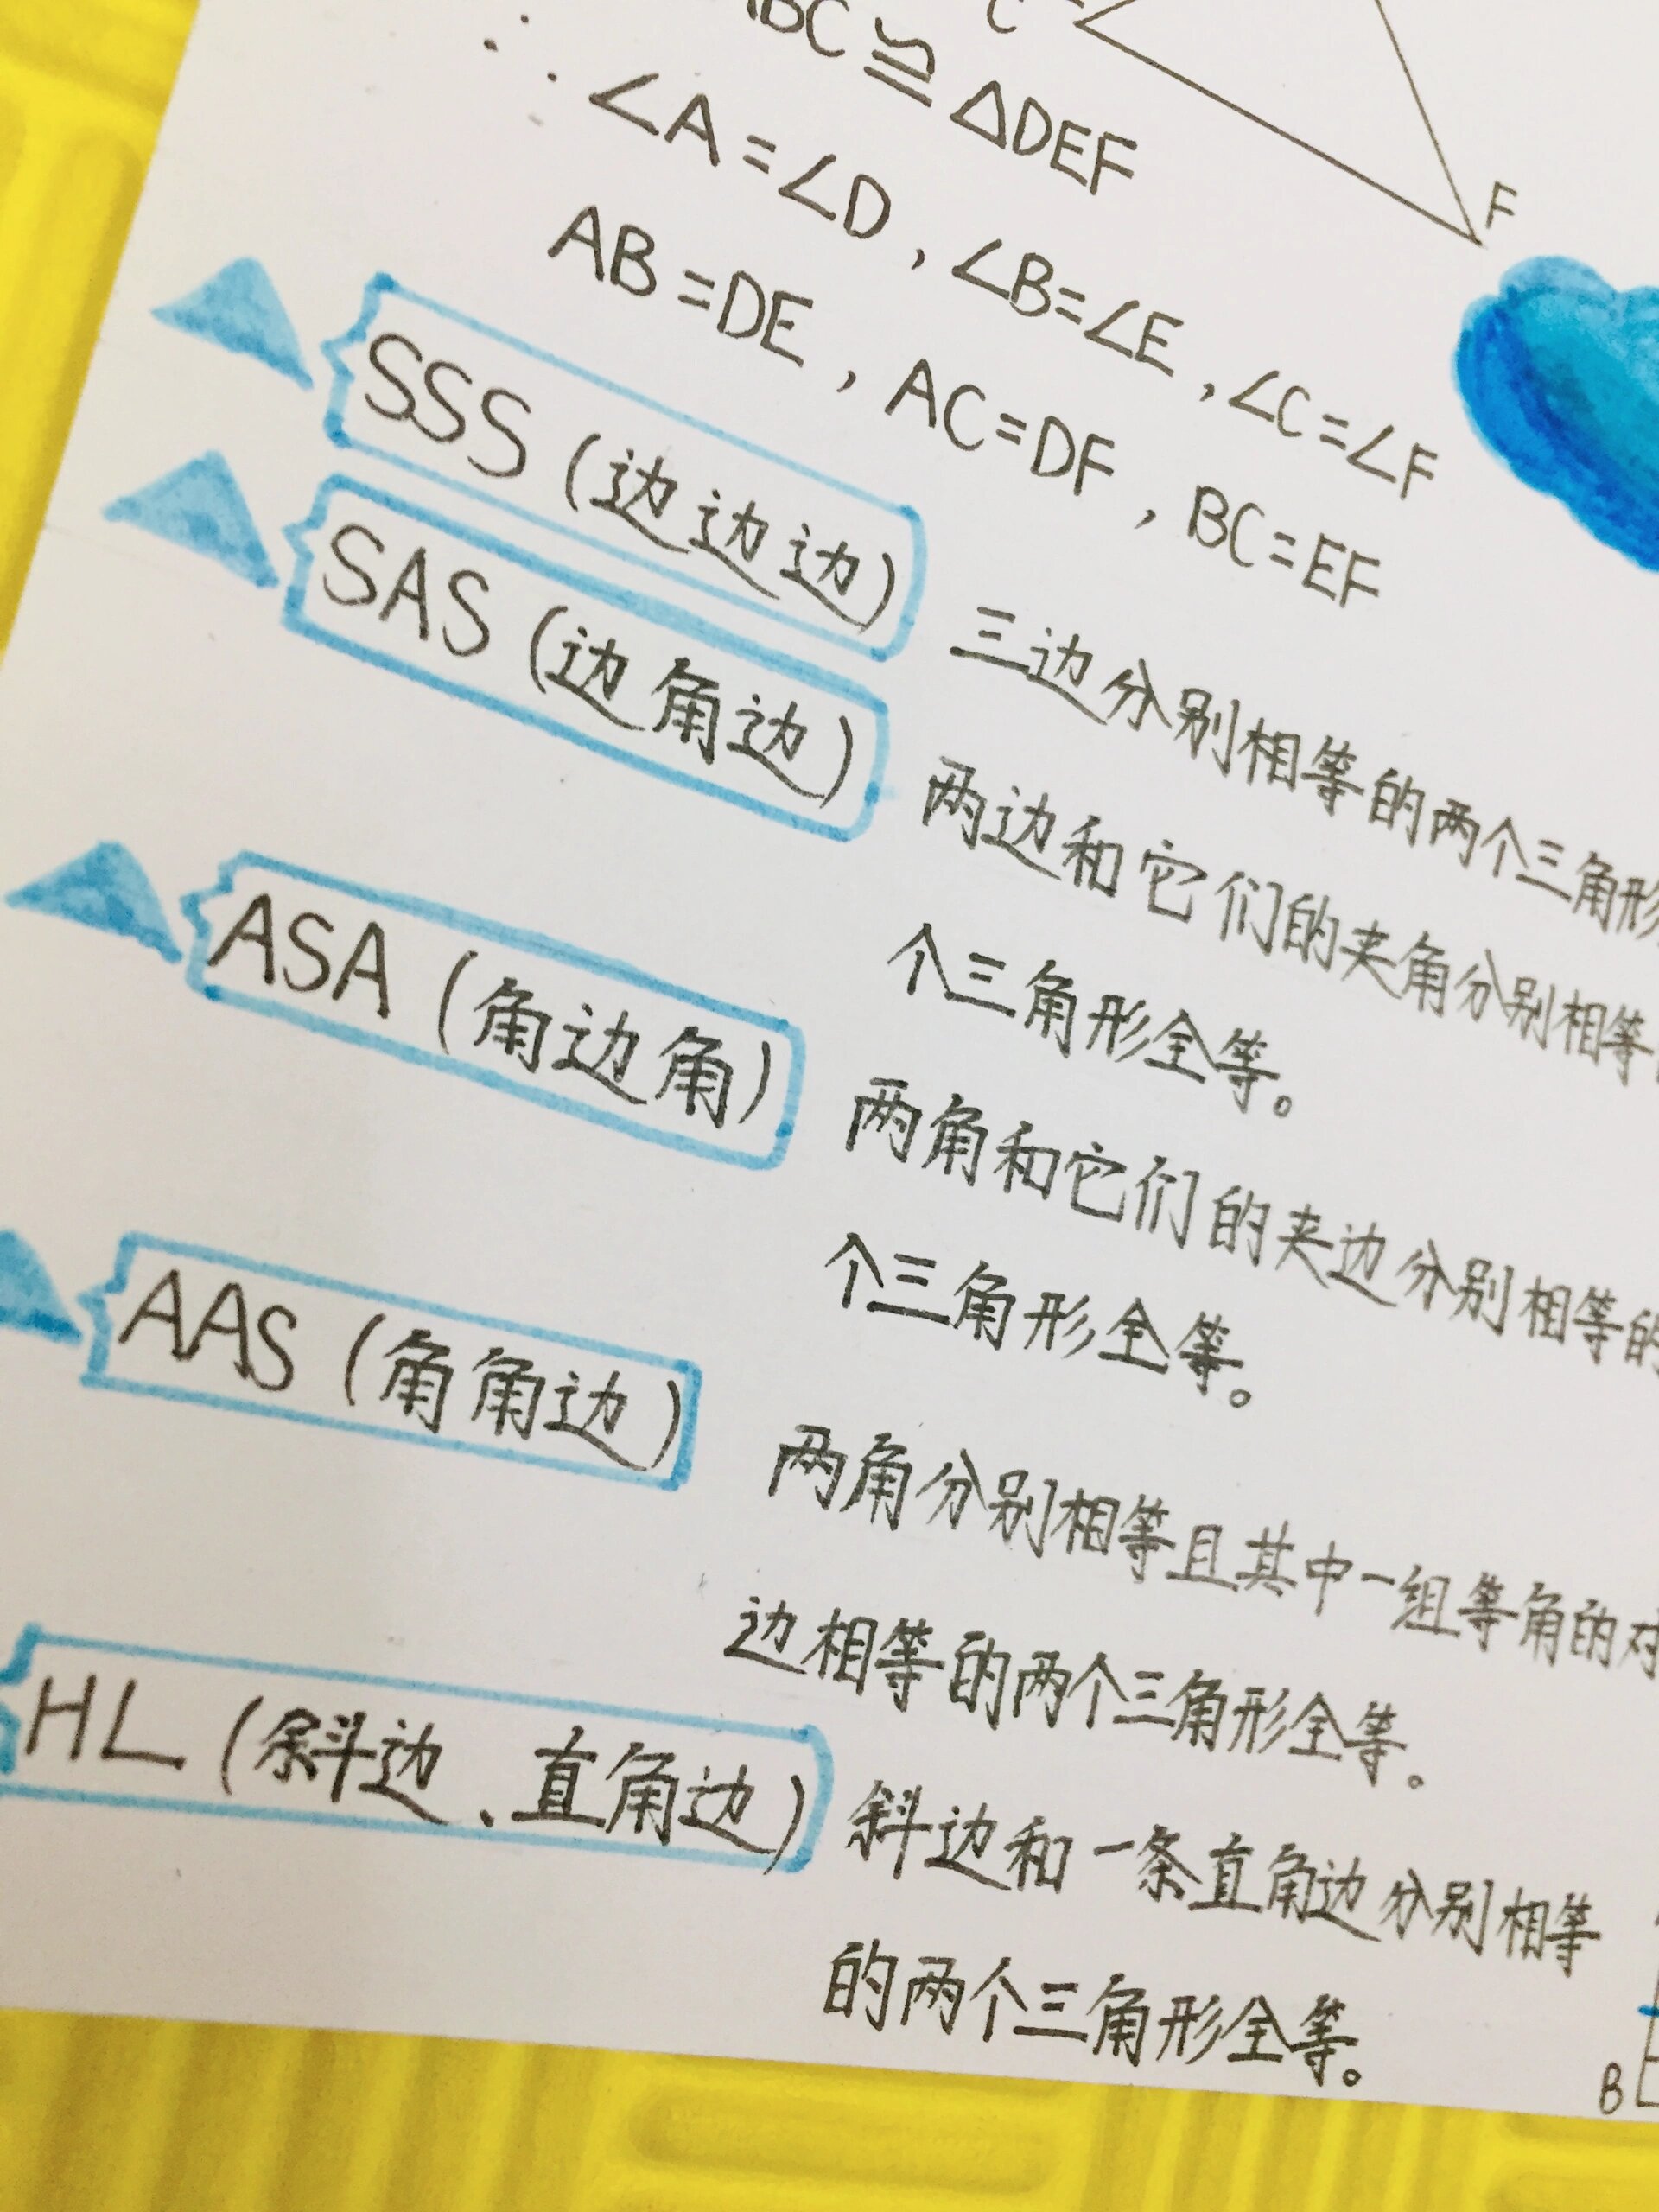 C
BC≌△DEF
∴ ∠A=∠D,∠B=∠E,∠C=∠F
AB=DE,AC=DF,BC=EF
F
SSS(边边边) 三边分别相等的两个三角形
SAS(边角边) 两边和它们的夹角分别相等
个三角形全等。
ASA(角边角) 两角和它们的夹边分别相等的
个三角形全等。
AAS(角角边) 两角分别相等且其中一组等角的对
边相等的两个三角形全等。
HL(斜边、直角边) 斜边和一条直角边分别相等
的两个三角形全等。
B